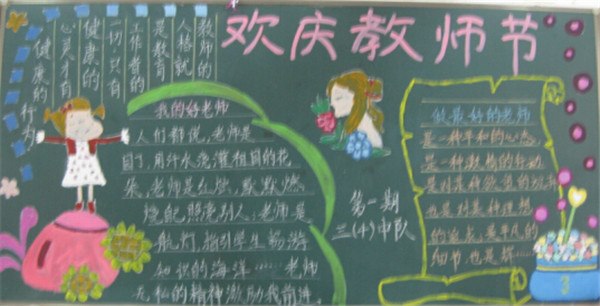 欢庆教师节
教师的
人格就
是教育
工作者的
一切,只有
健康的
心灵才有
健康的
行为
我的好老师
人们都说,老师是
园丁,用汗水浇灌祖国的花
朵,老师是红烛,默默燃
烧自己,照亮别人,老师是
航灯,指引学生畅游
知识的海洋……老师
无私的精神激励我前进。
第一期
三(4)中队
做最好的老师
是一种平和的心态,
是一种
是对
也是对某种理想
的追求,是平凡的
细节,也是